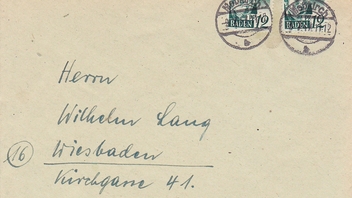 BADEN 12 BADEN 12
Herrn
Wilhelm Lang
(16) Wiesbaden
Kirchgasse 41.